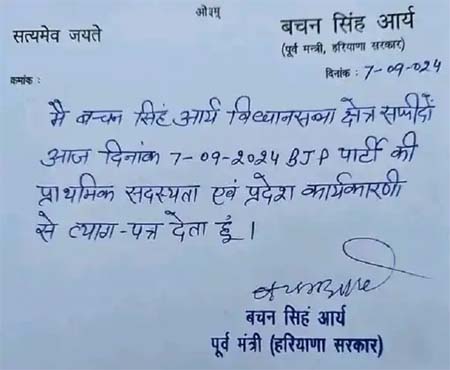 ओ३म्
सत्यमेव जयते
बचन सिंह आर्य
(पूर्व मन्त्री, हरियाणा सरकार)
क्रमांक :
दिनांक : 7-09-024
मै बच्चन सिहं आर्य विधानसभा क्षेत्र सफीदों
आज दिनांक 7-09-2024 BJP पार्टी की
प्राथमिक सदस्यता एवं प्रदेश कार्यकारणी
से त्याग-पत्र देता हूं।
बचन सिहं आर्य
पूर्व मंत्री (हरियाणा सरकार)